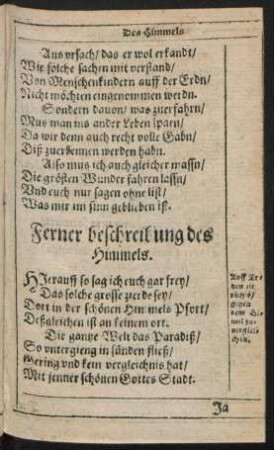 Des Himmels
Aus vrsach / das er wol erkandt /
Wir solche sachen mit verstand /
Von Menschenkindern auff der Erdn /
Nicht möchten eingenommen werdn.
Sondern dauon / was zuerfahrn /
Mus man ins ander Leben sparn /
Da wir denn auch recht volle Gabn /
Diß zuerkennen werden habn.
Also mus ich auch gleicher massn /
Die grösten Wunder fahren lassn /
Vnd euch nur sagen ohne list /
Was mir im sinn geblieben ist.
Ferner beschreibung des
Himmels.
HJerauff so sag ich euch gar frey /
Das solche grosse zierde sey /
Dort in der schönen Himmels Pfort /
Deßgleichen ist an keinem ort.
Die gantze Welt das Paradiß /
So vntergieng in sünden fließ /
Gering vnd kein vergleichnis hat /
Mit jenner schönen Gottes Stadt.
Auff Er-
den ist
nichts /
dem Hi-
Ja